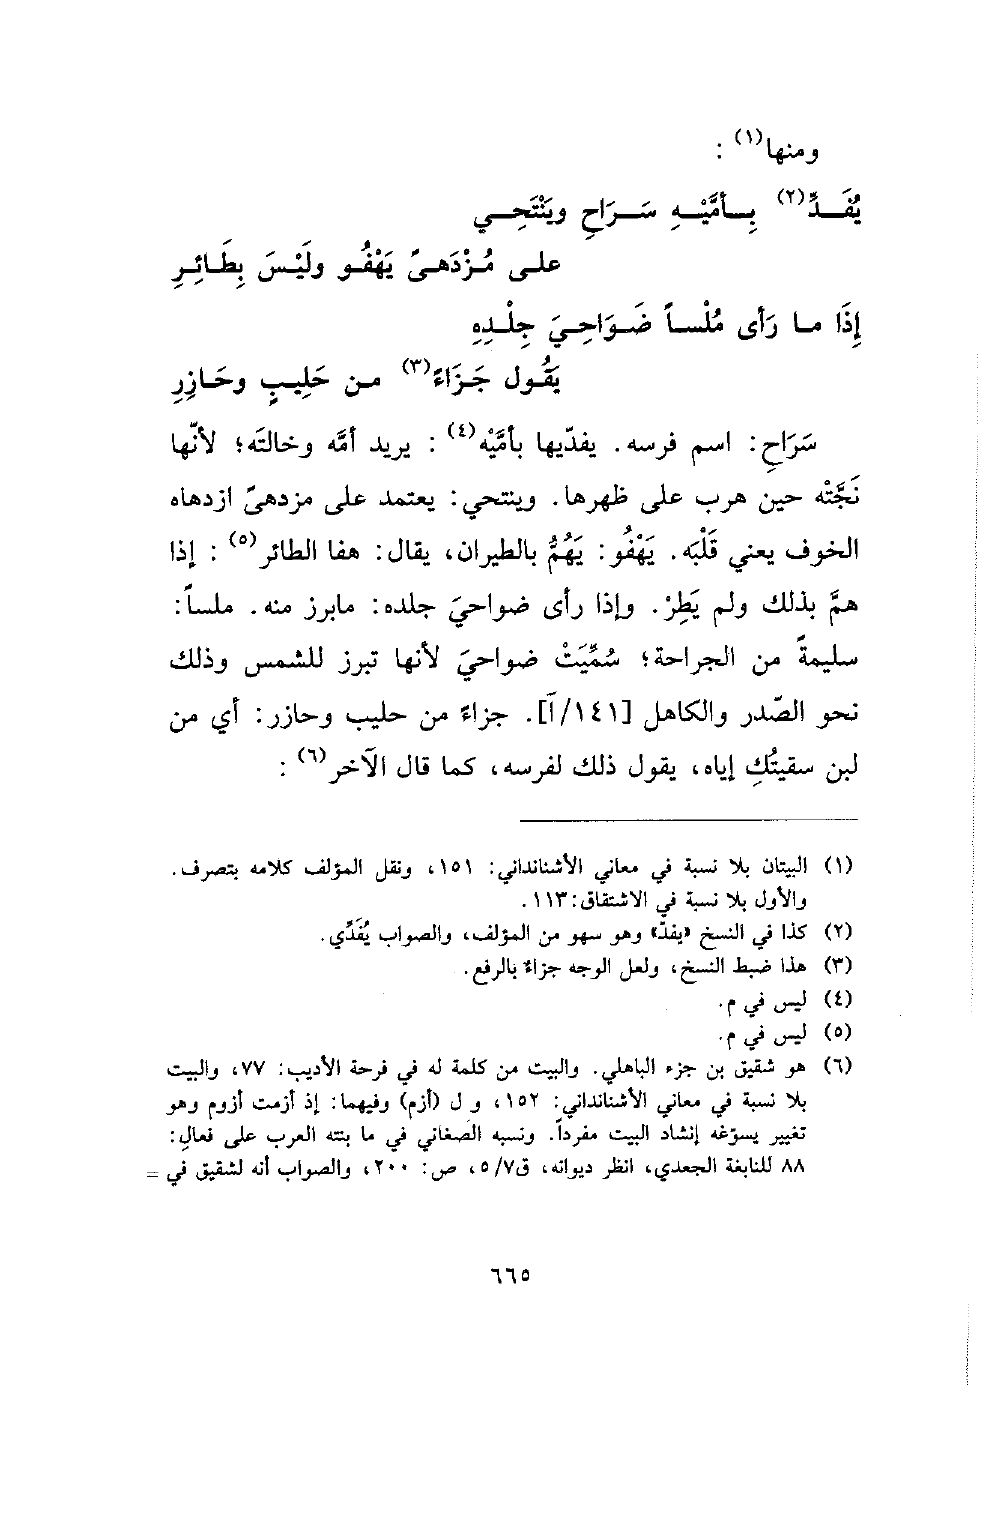 ومنها(١) :
يُفَـدِّ(٢) بِـأمَّيْـهِ سَـرَاحِ ويَنْتَحِـي
علـى مُـزْدَهـىً يَهْفُـو ولَيْـسَ بِطَـائِـرِ
إِذَا مـا رَأى مُلْسـاً ضَـوَاحِـيَ جِلْـدِهِ
يَقُـول جَـزَاءً(٣) مـن حَلِيـبٍ وحَـازِرِ
سَرَاحِ: اسم فرسه. يفدّيها بأمَّيْه(٤) : يريد أمَّه وخالتَه؛ لأنّها
نَجَّتْه حين هرب على ظهرها. وينتحي: يعتمد على مزدهىً ازدهاه
الخوف يعني قَلْبَه. يَهْفُو: يَهُمُّ بالطيران، يقال: هفا الطائر(٥) : إذا
همَّ بذلك ولم يَطِرْ. وإذا رأى ضواحيَ جلده: مابرز منه. ملساً:
سليمةً من الجراحة؛ سُمِّيَتْ ضواحيَ لأنها تبرز للشمس وذلك
نحو الصّدر والكاهل [١٤١/آ]. جزاءً من حليب وحازر: أي من
لبن سقيتُكِ إياه، يقول ذلك لفرسه، كما قال الآخر(٦) :
(١) البيتان بلا نسبة في معاني الأشنانداني: ١٥١، ونقل المؤلف كلامه بتصرف.
والأول بلا نسبة في الاشتقاق: ١١٣.
(٢) كذا في النسخ «يفدّ» وهو سهو من المؤلف، والصواب يُفَدِّي.
(٣) هذا ضبط النسخ، ولعل الوجه جزاءٌ بالرفع.
(٤) ليس في م.
(٥) ليس في م.
(٦) هو شقيق بن جزء الباهلي. والبيت من كلمة له في فرحة الأديب: ٧٧، والبيت
بلا نسبة في معاني الأشنانداني: ١٥٢، و ل (أزم) وفيهما: إذ أزمت أزوم وهو
تغيير يسوّغه إنشاد البيت مفرداً. ونسبه الصغاني في ما بنته العرب على فعالِ:
٨٨ للنابغة الجعدي، انظر ديوانه، ق٥/٧، ص: ٢٠٠، والصواب أنه لشقيق في =
٦٦٥